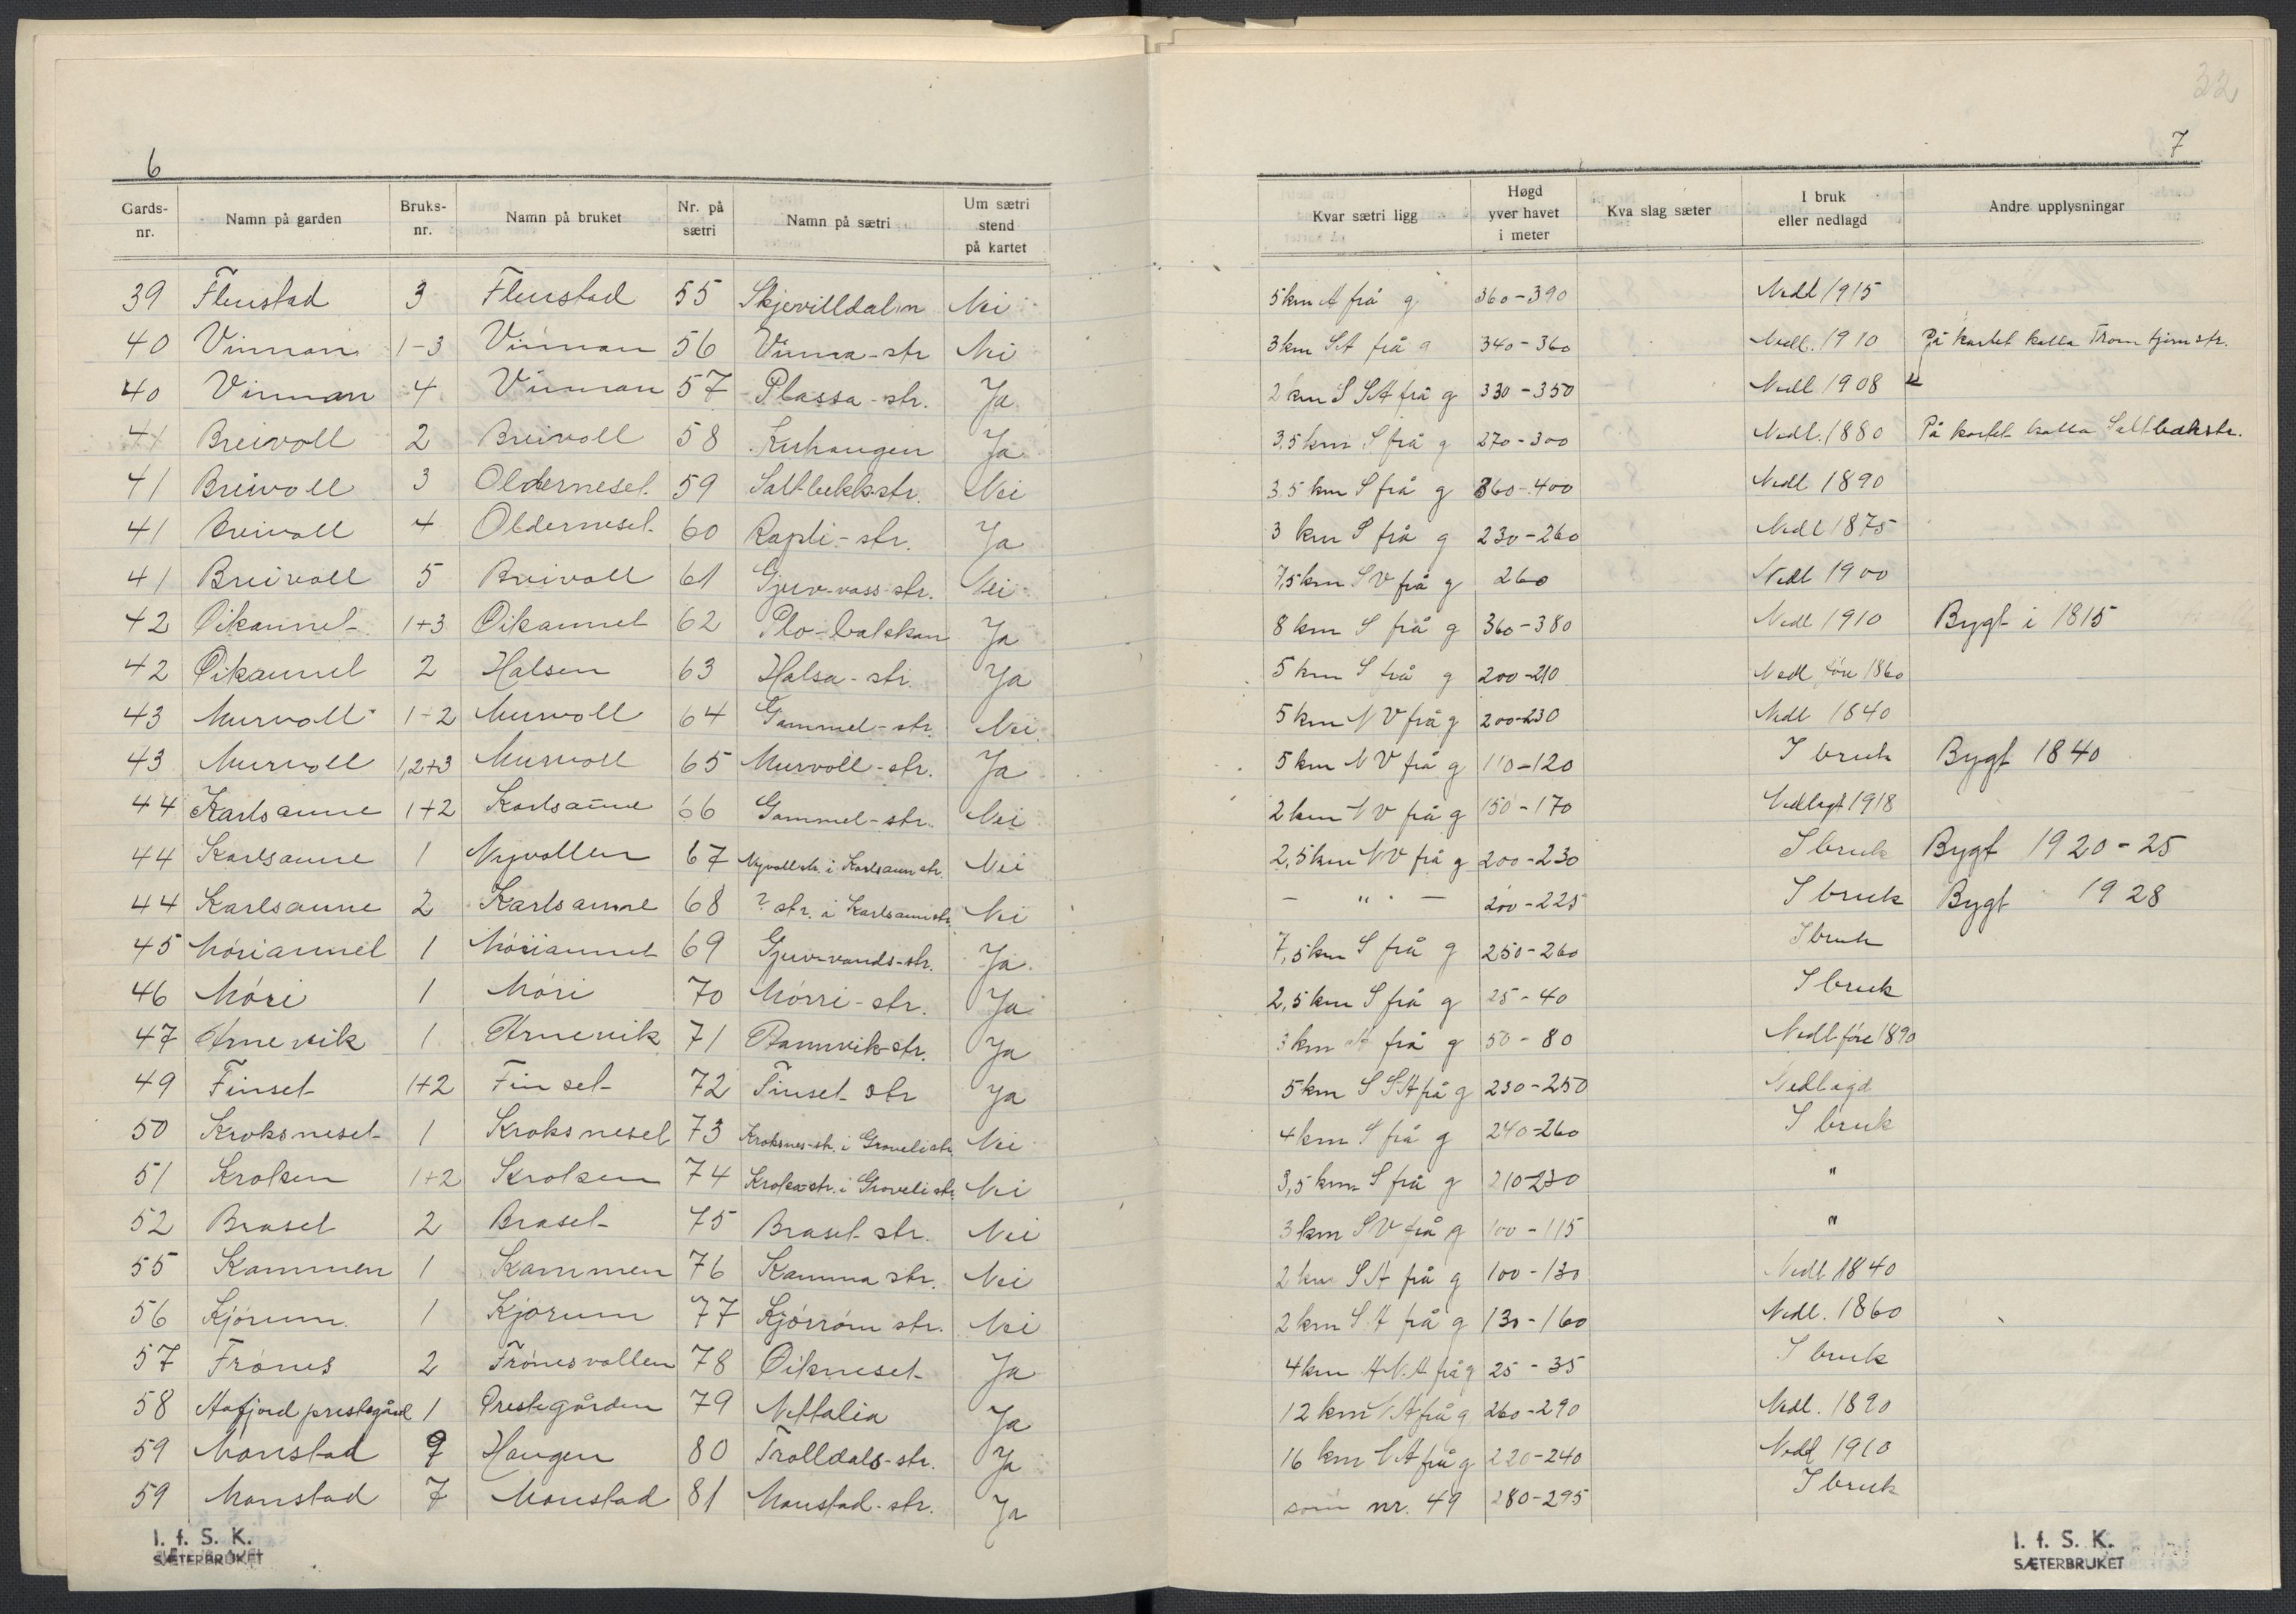 32
6
7
Gards-nr. Namn på garden Bruks-nr. Namn på bruket Nr. på sætri Namn på sætri Um sætri stend på kartet Kvar sætri ligg Høgd yver havet i meter Kva slag sæter I bruk eller nedlagd Andre upplysningar
39 Flenstad 3 Flenstad 55 Skjevilldalen Nei 5 km A frå g 360-390 Nedl 1915
40 Vinnan 1-3 Vinnan 56 Vinna-str Nei 3 km SA frå g 340-360 Nedl. 1910 På kartet kalla Tromtjern str.
40 Vinnan 4 Vinnan 57 Plassa-str. Ja 2 km S SA frå g 330-350 Nedl 1908
41 Breivoll 2 Breivoll 58 Kuhaugen Ja 3,5 km S frå g 270-300 Nedl. 1880 På kartet kalla Saltbækstr.
41 Breivoll 3 Olderneset 59 Saltbekkstr. Nei 3.5 km S frå g 360-400 Nedl 1890
41 Breivoll 4 Olderneset 60 Rapli-str. Ja 3 km S frå g 230-260 Nedl 1875
41 Breivoll 5 Breivoll 61 Gjuv-vass-str. Nei 7,5 km SV frå g 260 Nedl 1900
42 Oikaunet 1+3 Oikaunet 62 Plo-bakkan Ja 8 km S frå g 360-380 Nedl 1910 Bygt i 1815
42 Oikaunet 2 Halsen 63 Halsa-str. Ja 5 km S frå g 200-210 Nedl före 1860
43 Murvoll 1-2 Murvoll 64 Gammel-str. Nei 5 km NV frå g 200-230 Nedl 1840
43 Murvoll 1,2+3 Murvoll 65 Murvoll-str. Ja 5 km NV frå g 110-120 I bruk Bygt 1840
44 Karlsaune 1+2 Karlsaune 66 Gammel-str. Nei 2 km NV frå g 150-170 Nedlagt 1918
44 Karlsaune 1 Nyvollen 67 Nyvollstr. i Karlsaun str. Nei 2,5 km NV frå g 200-230 I bruk Bygt 1920-25
44 Karlsaune 2 Karlsaune 68 ? str. i Karlsaunstr. Nei - " - 200-225 I bruk Bygt 1928
45 Móriaunet 1 Móriaunet 69 Gjuv-vands-str. Ja 7,5 km S frå g 250-260 I bruk
46 Móri 1 Móri 70 Mórri-str. Ja 2,5 km S frå g 25-40 I bruk
47 Arnevik 1 Arnevik 71 Ramvik-str. Ja 3 km A frå g 50-80 Nedl före 1890
49 Finset 1+2 Finset 72 Finset str Ja 5 km S SA frå g 230-250 Nedlagd
50 Kroksneset 1 Kroksneset 73 Kroksnes-str. i Grovelistr. Nei 4 km S frå g 240-260 I bruk
51 Kroken 1+2 Kroken 74 Kroka-str. i Groveli str. Nei 3,5 km S frå g 210-230 "
52 Braset 2 Braset 75 Braset str. Nei 3 km SV frå g 100-115 "
55 Kammen 1 Kammen 76 Kamma str. Nei 2 km SA frå g 100-130 Nedl. 1840
56 Kjórum 1 Kjorum 77 Kjórróm str. Nei 2 km SA frå g 130-160 Nedl. 1860
57 Frónes 2 Frónesvollen 78 Oikneset Ja 4 km ANA frå g 25-35 I bruk
58 Aafjord prestegård 1 Prestegården 79 Nettalia Ja 12 km NA frå g 260-290 Nedl. 1890
59 Monstad 9 Haugen 80 Trolldals-str. Ja 16 km NA frå g 220-240 Nedl 1910
59 Monstad 7 Monstad 81 Monstad-str. Ja som nr. 49 280-295 I bruk
I. f. S. K.
SÆTERBRUKET
I. f. S. K.
SÆTERBRUKET